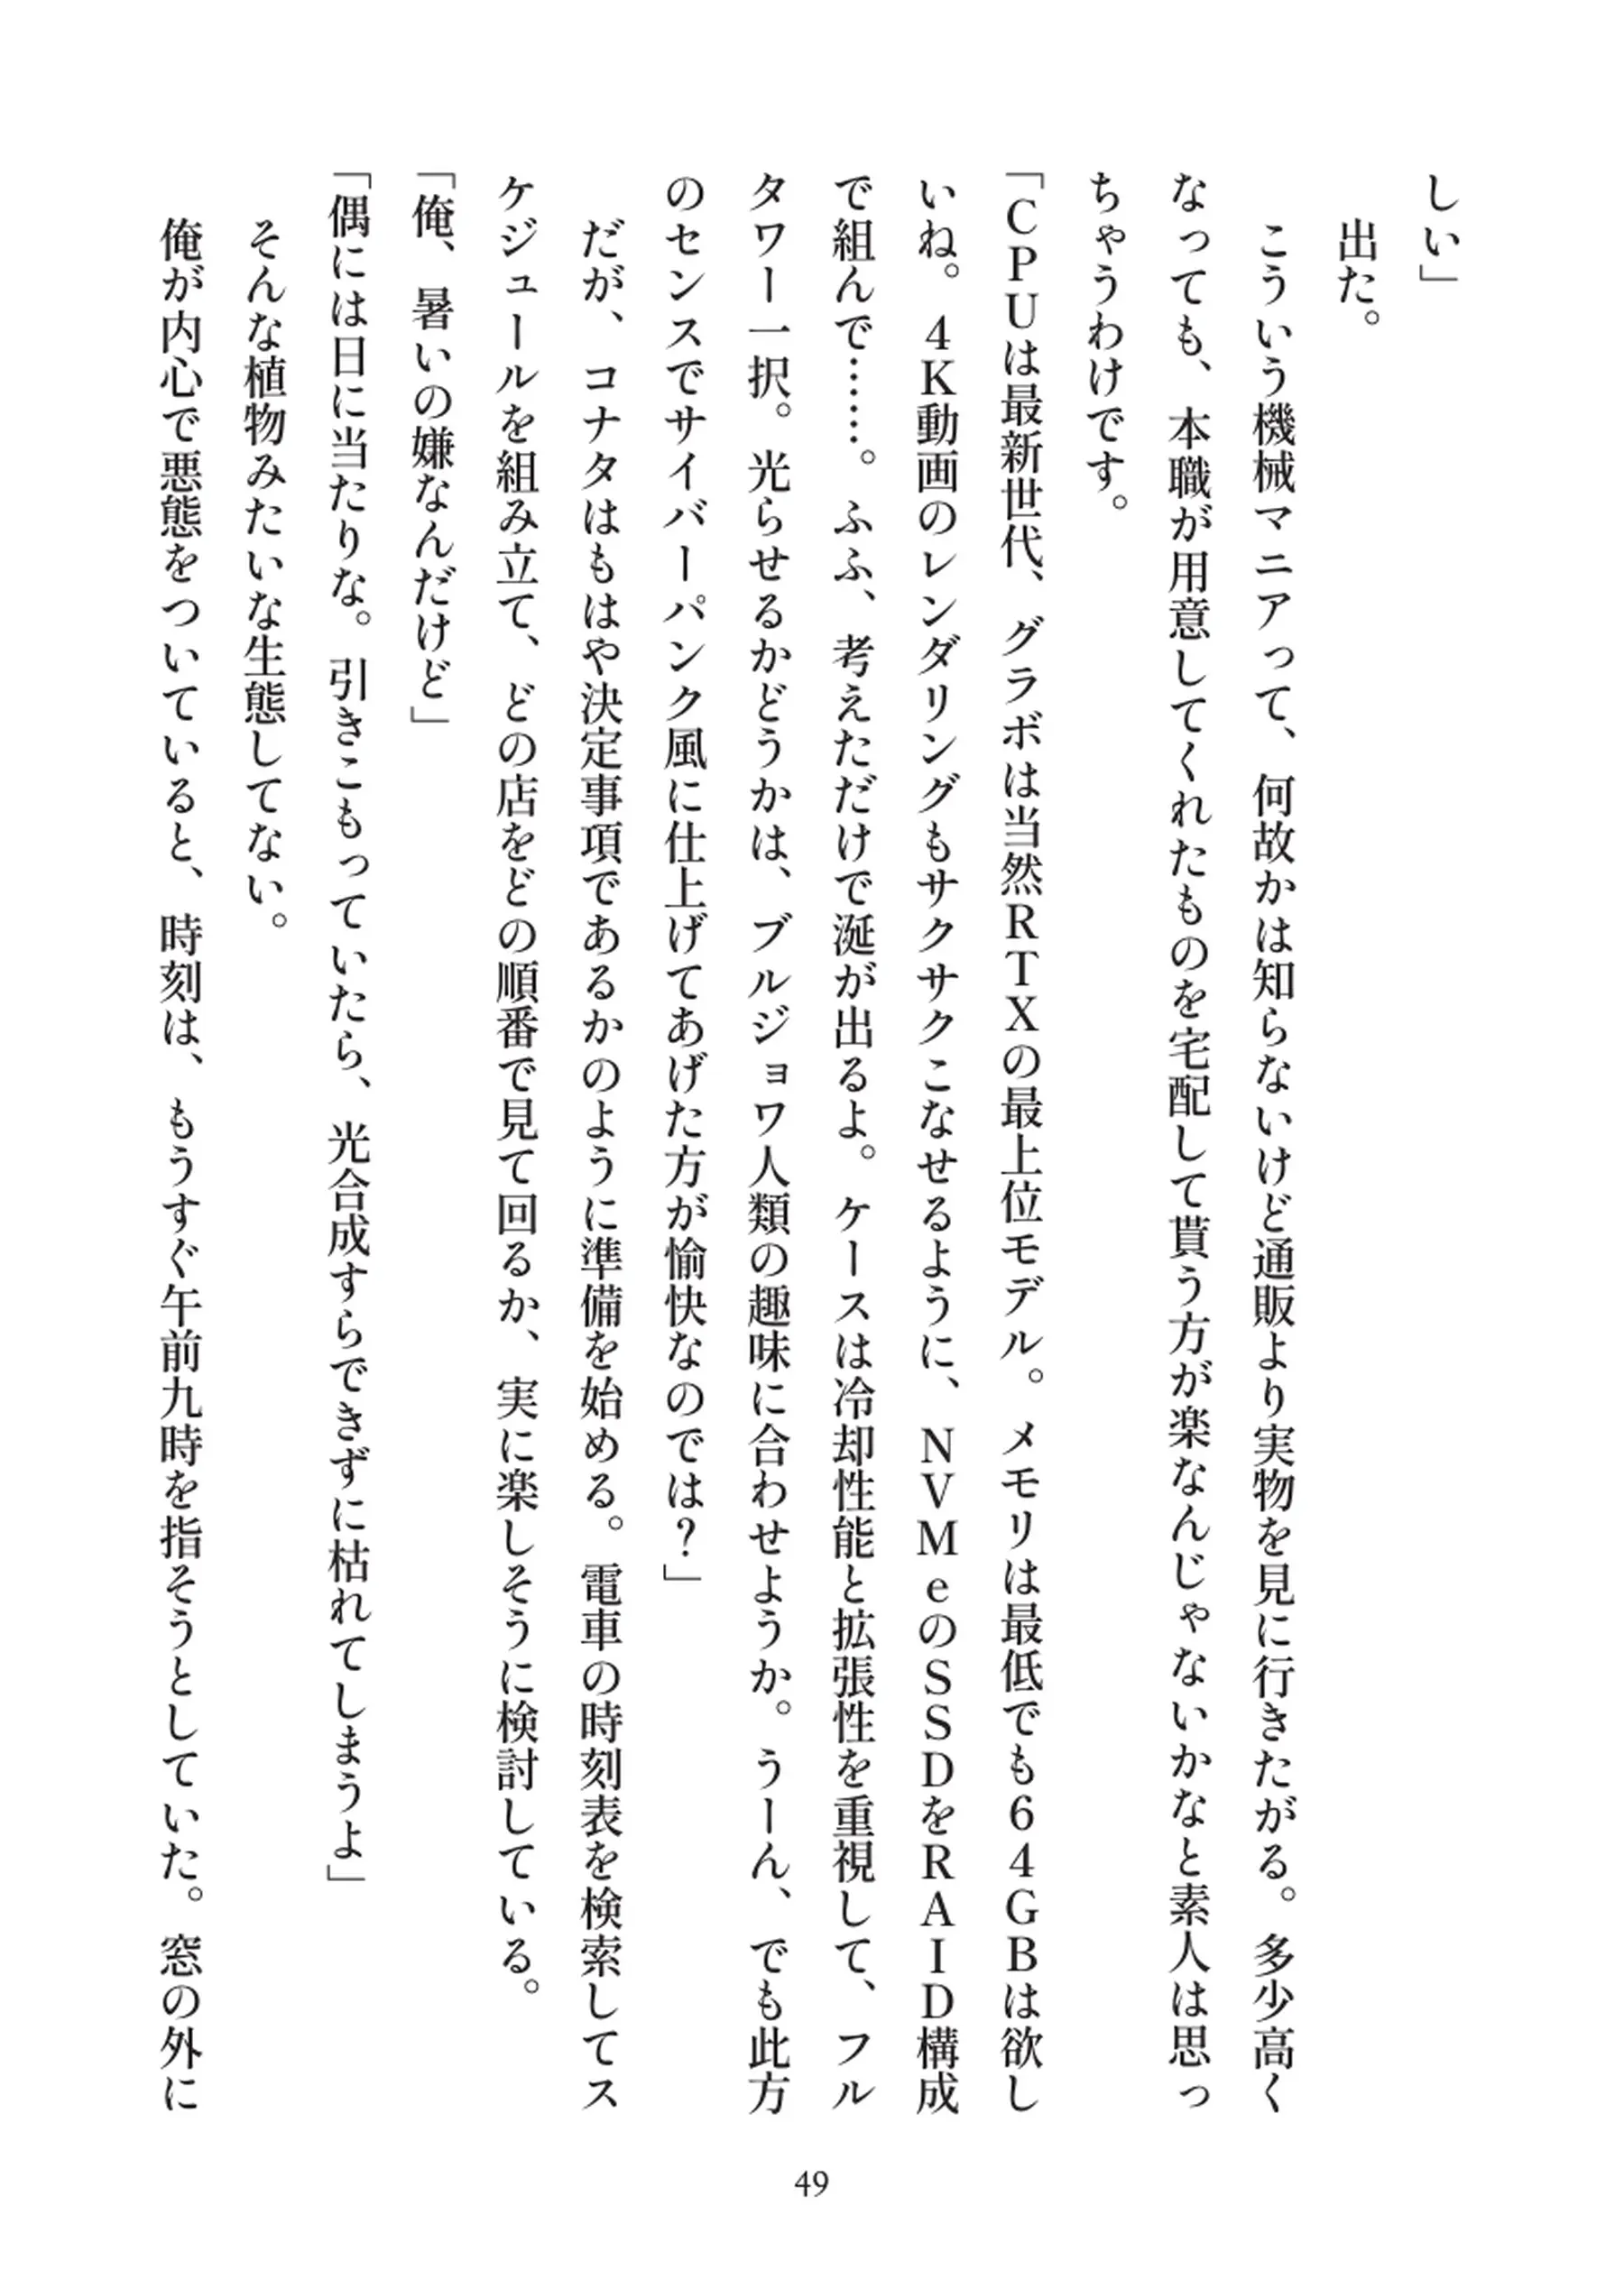 しい」
　出た。
　こういう機械マニアって、何故かは知らないけど通販より実物を見に行きたがる。多少高く
なっても、本職が用意してくれたものを宅配して貰う方が楽なんじゃないかなと素人は思っ
ちゃうわけです。
「CPUは最新世代、グラボは当然RTXの最上位モデル。メモリは最低でも64GBは欲し
いね。4K動画のレンダリングもサクサクこなせるように、NVMeのSSDをRAID構成
で組んで……。ふふ、考えただけで涎が出るよ。ケースは冷却性能と拡張性を重視して、フル
タワー一択。光らせるかどうかは、ブルジョワ人類の趣味に合わせようか。うーん、でも此方
のセンスでサイバーパンク風に仕上げてあげた方が愉快なのでは？」
　だが、コナタはもはや決定事項であるかのように準備を始める。電車の時刻表を検索してス
ケジュールを組み立て、どの店をどの順番で見て回るか、実に楽しそうに検討している。
「俺、暑いの嫌なんだけど」
「偶には日に当たりな。引きこもっていたら、光合成すらできずに枯れてしまうよ」
　そんな植物みたいな生態してない。
　俺が内心で悪態をついていると、時刻は、もうすぐ午前九時を指そうとしていた。窓の外に
49